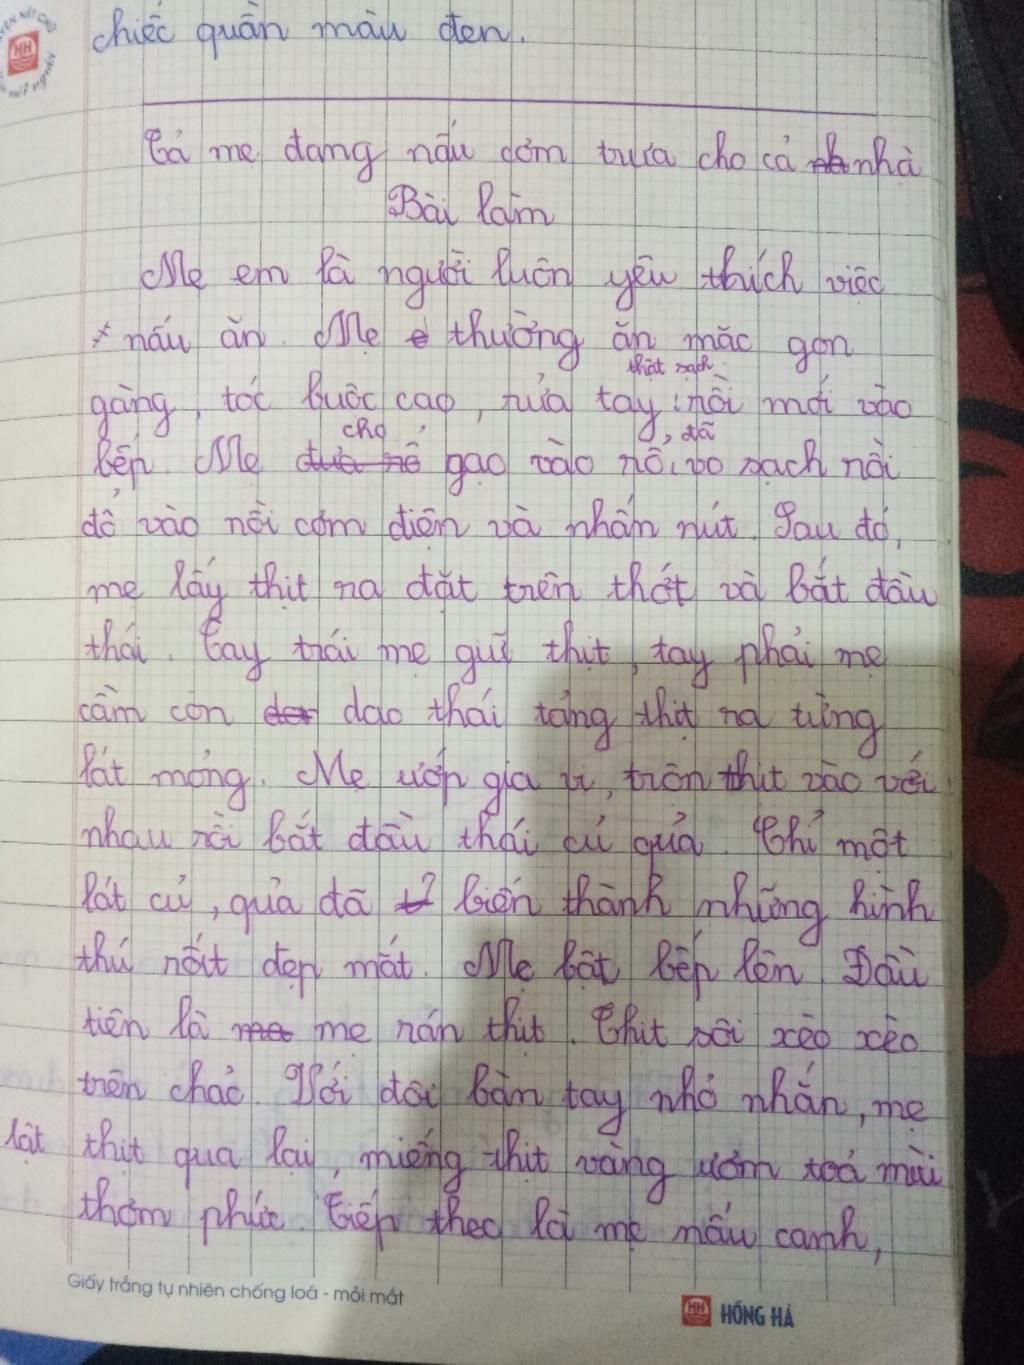 chiếc quần màu đen.
Tả mẹ đang nấu cơm trưa cho cả nhà
Bài làm
Mẹ em là người luôn yêu thích việc
nấu ăn. Mẹ thường ăn mặc gọn
thật sạch
gàng, tóc buộc cao, rửa tay rồi mới vào
cho , đã
bếp. Mẹ gạo vào nồi vo sạch rồi
đổ vào nồi cơm điện và nhấn nút. Sau đó,
mẹ lấy thịt ra đặt trên thớt và bắt đầu
thái. Tay trái mẹ giữ thịt, tay phải mẹ
cầm con dao thái tảng thịt ra từng
lát mỏng. Mẹ ướp gia vị, trộn thịt vào với
nhau rồi bắt đầu thái củ quả. Chỉ một
lát củ, quả đã biến thành những hình
thú rất đẹp mắt. Mẹ bật bếp lên. Đầu
tiên là mẹ rán thịt. Thịt sôi xèo xèo
trên chảo. Với đôi bàn tay nhỏ nhắn, mẹ
lật thịt qua lại, miếng thịt vàng ươm toả mùi
thơm phức. Tiếp theo là mẹ nấu canh,
Giấy trắng tự nhiên chống loá - mỏi mắt
HH HỒNG HÀ